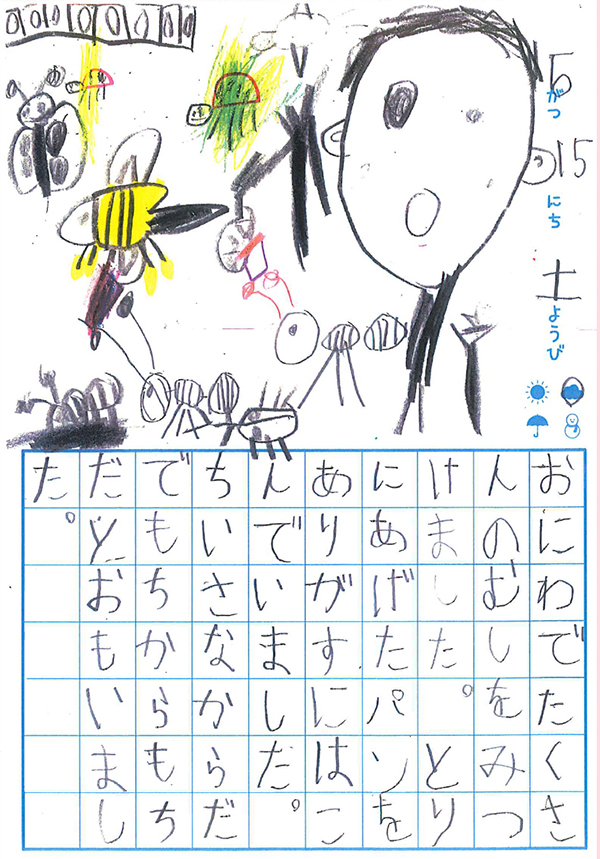 5がつ15にち土ようび
おにわでたくさ
んのむしをみつ
けました。とり
にあげたパンを
ありがすにはこ
んでいました。
ちいさなからだ
でもちからもち
だとおもいまし
た。